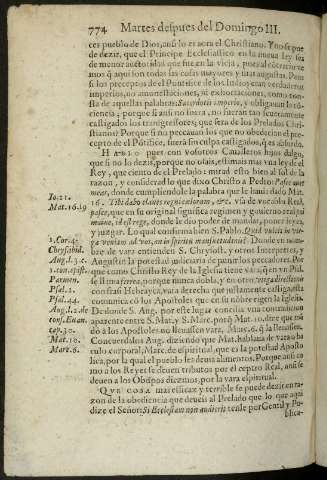 774 Martes despues del Domingo III.
ces pueblo de Dios, ansi lo es aora el Christiano. Y no se puede
de dezir, que el Principe Ecclesiastico en la nueua ley sea
de menor auctoridad que fue en la vieja, pues al contrario
mos q̃ aqui son todas las cosas mayores y mas augustas. Pues
si los preceptos del Pontifice de los Indios eran verdaderos
imperios, no amonestaciones, ni exhortaciones, como consta
de aquellas palabras: Sacerdotis imperio, y obligauan
ciencia; porque si ansi no fuera, no fueran tan seueramente
castigados los transgressores; que sera de los Prelados Christianos?
Porque si no peccauan los que no obedecian el precepto
del Põtifice, fuera sin culpa castigados, q̃ es absurdo.
pues con vosotros Caualleros hijos dalgo,
que si no lo dezis, porque no osais, estimais mas vna ley del
Rey, que ciento de el Prelado: mirad esto bien al sol de la
razon, y considerad lo que dixo Christo a Pedro: Pasce oues
meas, donde cumpliendole la palabra que le haui dado Mat.
16. Tibi dabo claues regni cœlorum, &c. vsa de vocablo Real,
pasce, que en su original significa regimen y gouierno
, id est rege, donde le dio poder de mandar, poner leyes,
y juzgar. Lo qual confirma bien S. Pablo. Quid vultis in virga
veniam ad vos, an in spiritu mansuetudinis? Donde en nombre
de vara entienden S. Chrysost. y otros Interpretes, y
Augustin la potestad iudicaria de punir los peccadores. Porque
como Christo Rey de la Iglesia tiene vara, q̃ en vn Psal.
se llama ferrea, porque nunca dobla, y en otro, virga directionis
con frasi Hebrayca, vara derecha que justamente castiga, esta
comunica cõ los Apostoles que en su nõbre rigen la Iglesia.
De donde S. Aug. por este lugar concilia vna contradicion
aparente entre S. Mat. y S. Marc. porq̃ Mat. 10. dize que mãdo
a los Apostoles no lleuassen vara, Marc. 6. q̃ la lleuassen.
Concuerdalos Aug. diziendo que Mat. hablaua de vara o baculo
corporal, Marc. de espiritual, que es la potestad Apostolica,
por la qual el pueblo les deuia alimentos. Porque ansi como
a los Reyes se deuen tributos por el ceptro Real, ansi se
deuen a los Obispos diezmos, por la vara espiritual.
QVE COSA mas eficaz y terrible se puede dezir en razon
de la obediencia que deueis al Prelado que lo que aqui
dize el Señor: Si Ecclesiam non audierit tenle por Gentil y Publica-
Io. 21.
Mat. 16. 19
1. Cor. 4.
Chrysost. ibid.
Parmen.
Psal. 2.
Psal. 44.
Aug. l. 2. de
cons. Euan.
cap. 30.
Mat. 10.
Marc. 6.